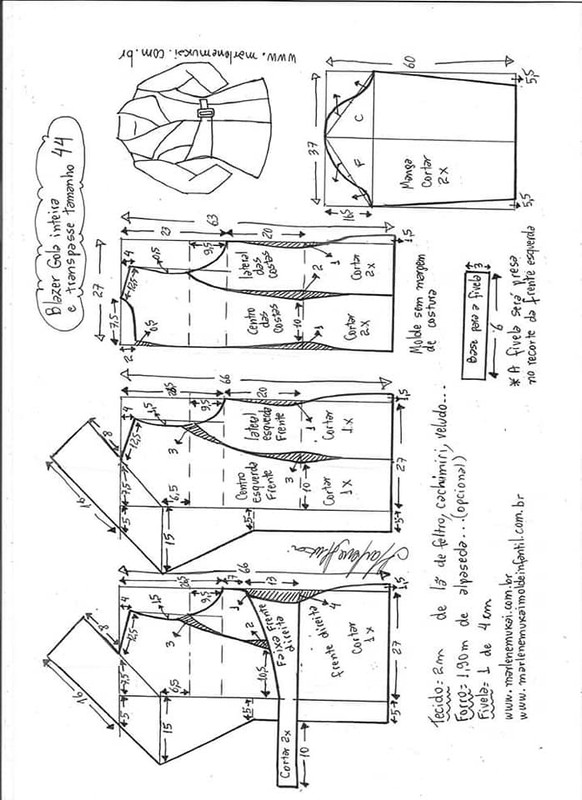 Blazer Gola inteira
e transpasse tamanho 44
www.marlenemukai.com.br
37
60
16,5
5,5
5,5
F
C
Manga
Cortar
2x
27
7,5
12,5
4
2
6,5
1,5
23
63
9,5
20
10
2
1
1
1,5
Centro
das
Costas
Cortar
2x
lateral
das
Costas
Cortar
2x
Molde sem margem
de costura
Base para a fivela
3
6
* A fivela será presa
no recorte da frente esquerda
16
8
5
7,5
12,5
4
1,5
6,5
15
3
66
9,5
20
10
3
1
5
5
27
1,5
Centro
Esquerda
Frente
Cortar
1x
lateral
esquerda
Frente
Cortar
1x
16
8
5
7,5
12,5
4
1,5
6,5
15
3
66
9,5
17
13
1
2
4
10,5
5
5
10
27
1,5
Faixa Frente
direita
Cortar 2x
frente direita
Cortar
1x
Tecido = 2m de lã de feltro, cachimiri, veludo...
Forro = 1,90m de alpaseda... (opcional)
Fivela = 1 de 4 cm
www.marlenemukai.com.br
www.marlenemukaimoldeinfantil.com.br